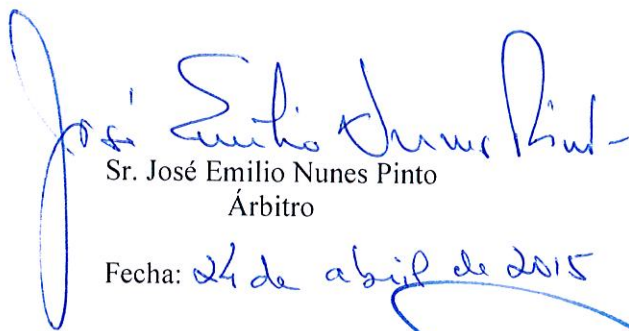 José Emilio Nunes Pinto
Sr. José Emilio Nunes Pinto
Árbitro
Fecha: 24 de abril de 2015